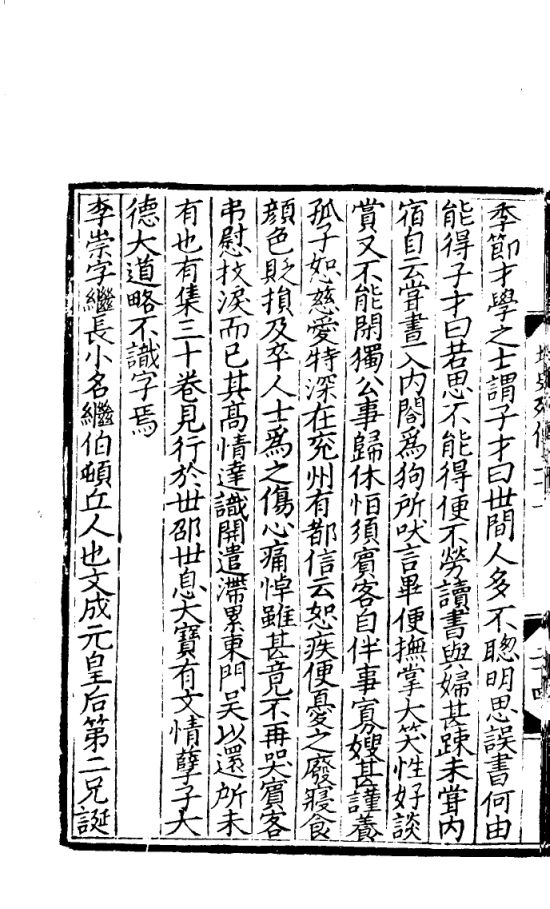 季節才學之士謂子才曰世間人多不聰明思誤書何由
能得子才曰若思不能得便不勞讀書與婦甚踈未甞内
宿自云甞晝入内閤爲狗所吠言畢便撫掌大笑性好談
賞又不能閑獨公事歸休恒須賓客自伴事寡嫂甚謹養
孤子恕慈愛特深在兖州有都信云恕疾便憂之廢寢食
顔色貶損及卒人士爲之傷心痛悼雖甚竟不再哭賓客
弔慰抆淚而已其髙情達識開遣滯累東門吳以還所未
有也有集三十卷見行於世邵世息大寶有文情孽子大
德大道略不識字焉
李崇字繼長小名繼伯頓丘人也文成元皇后第二兄誕